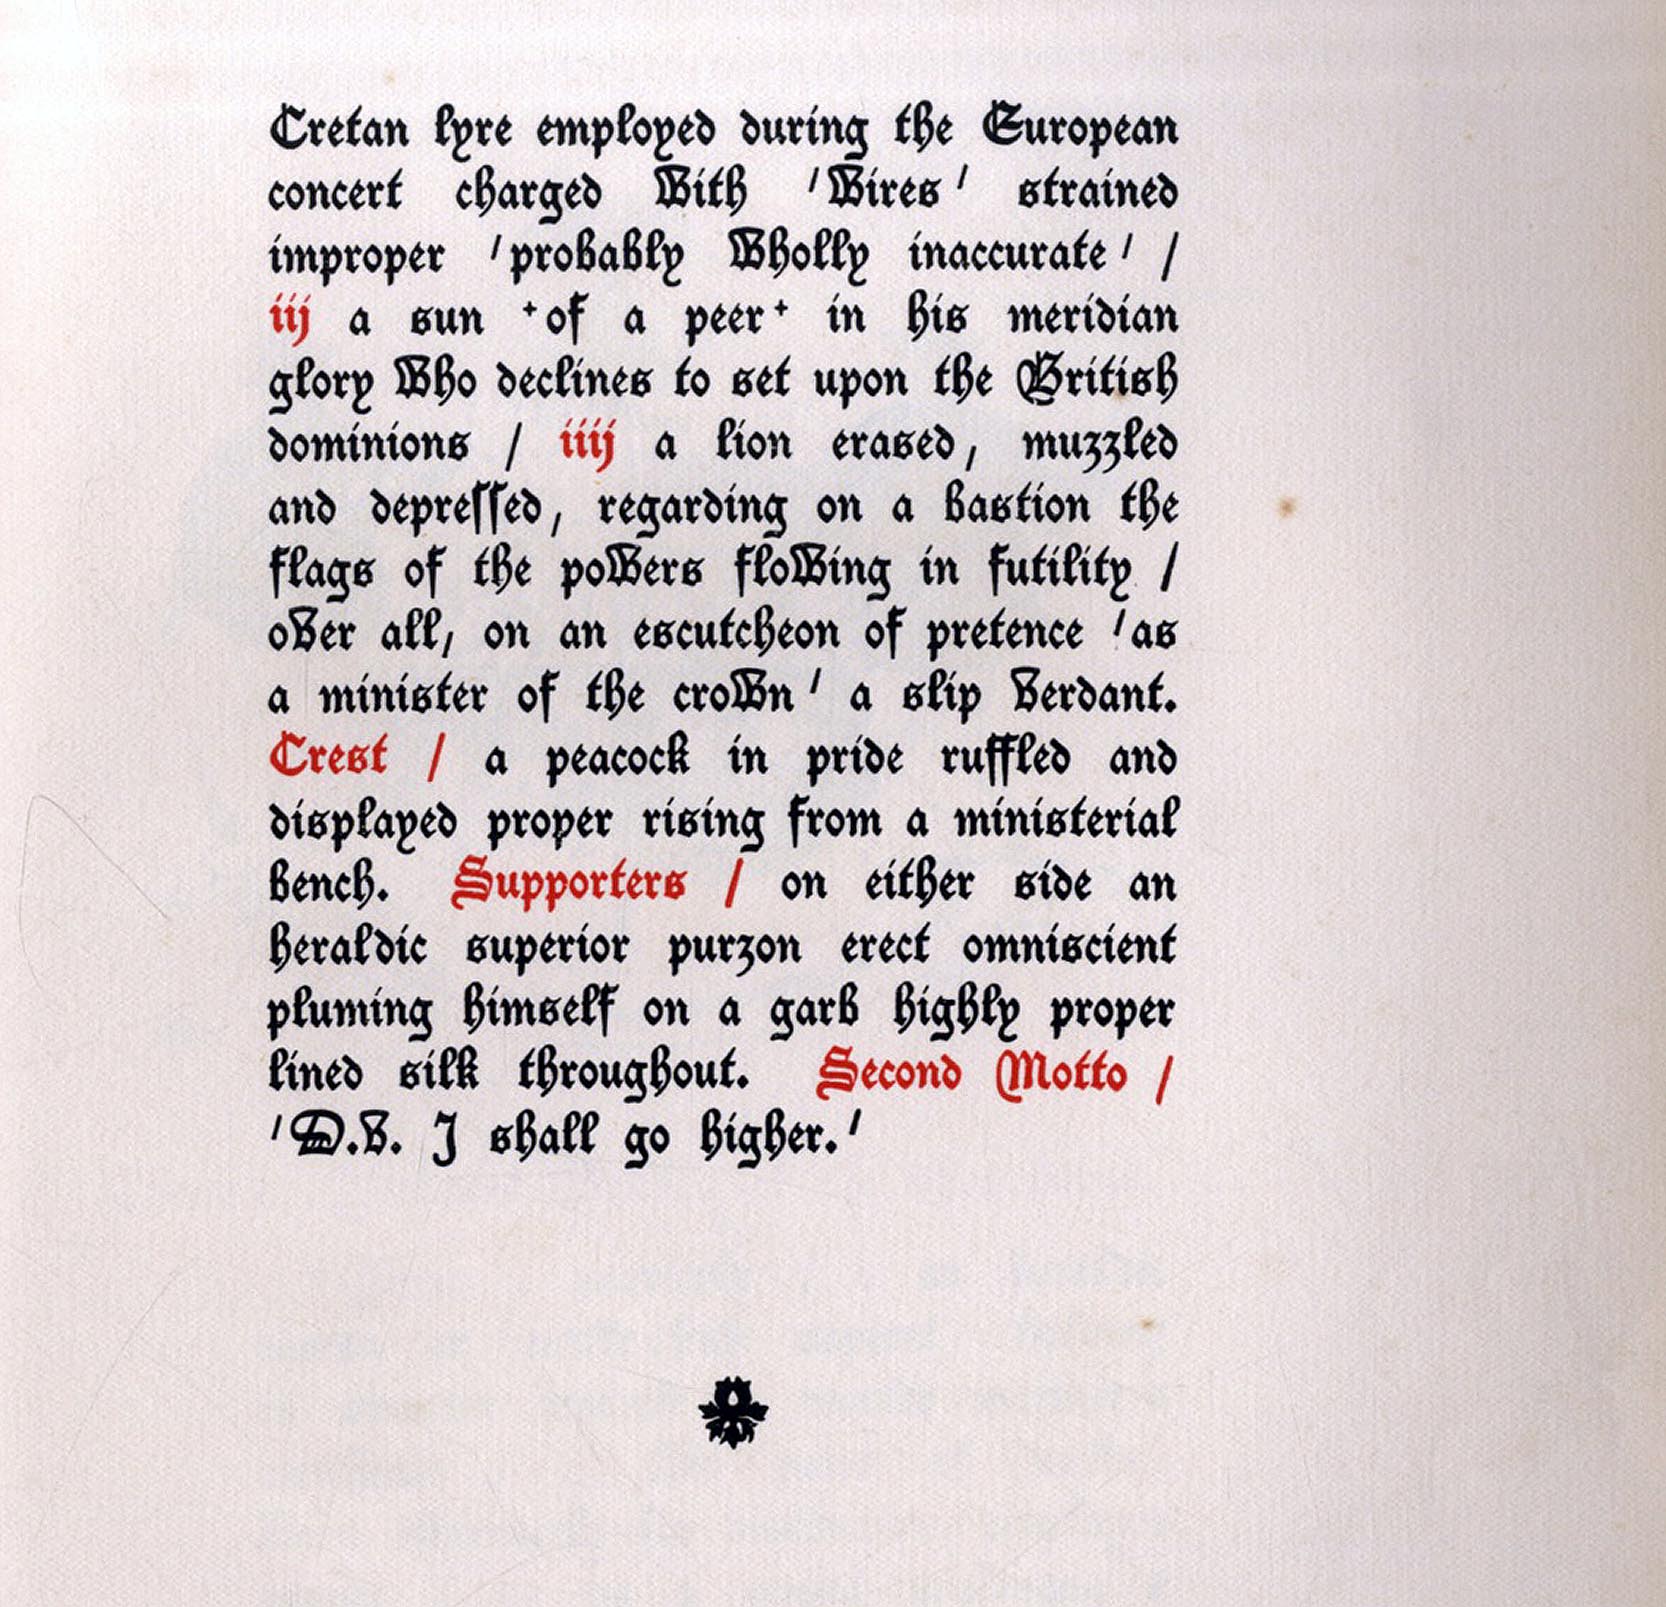 Cretan lyre employed during the European
concert charged with 'wires' strained
improper 'probably wholly inaccurate' /
iij a sun +of a peer+ in his meridian
glory who declines to set upon the British
dominions / iiij a lion erased, muzzled
and depreſſed, regarding on a bastion the
flags of the powers flowing in futility /
over all, on an escutcheon of pretence 'as
a minister of the crown' a slip verdant.
Crest / a peacock in pride ruffled and
displayed proper rising from a ministerial
bench. Supporters / on either side an
heraldic superior purzon erect omniscient
pluming himself on a garb highly proper
lined silk throughout. Second Motto /
'D.V. I shall go higher.'